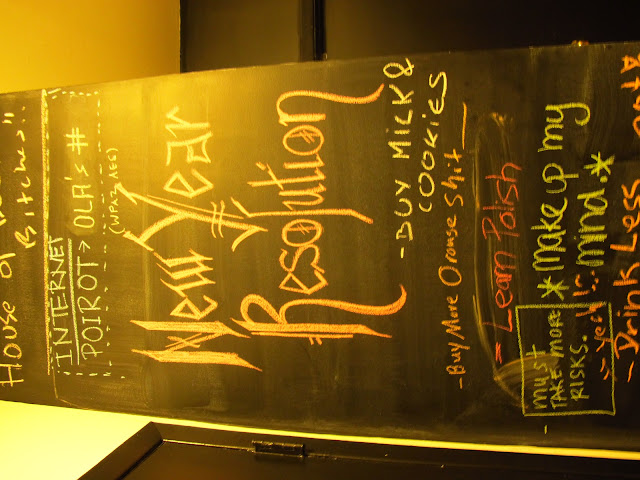 House of
Bitches"..
INTERNET
POIROT > OLA's #
New Year
Resolution
- BUY MILK &
COOKIES
- Buy More Orange Shit
- Learn Polish
- must
TAKE MORE
RISKS.
* Make up my
mind. *
- Drink Less